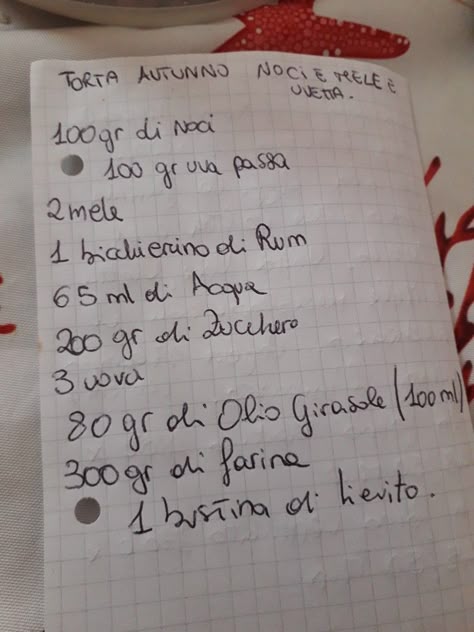 TORTA AUTUNNO NOCI E MELE E
UVETTA.
100gr di Noci
100 gr uva passa
2 mele
1 bicchierino di Rum
65 ml di Acqua
200 gr di Zucchero
3 uova
80 gr di Olio Girasole (100 ml)
300 gr di farina
1 bustina di lievito.